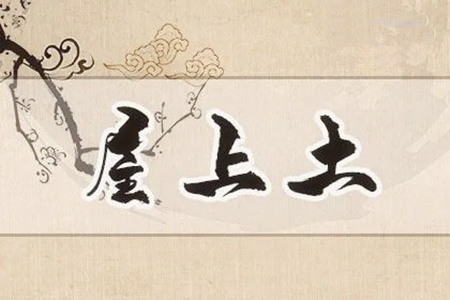 屋上土